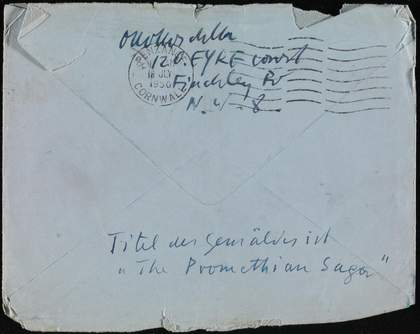 OKokoschka
120. EYRE court
Finchley Rd
N.W. 8
18 JLY
1950
CORNWALL
Titel des Gemäldes ist
„The Promethian Saga"